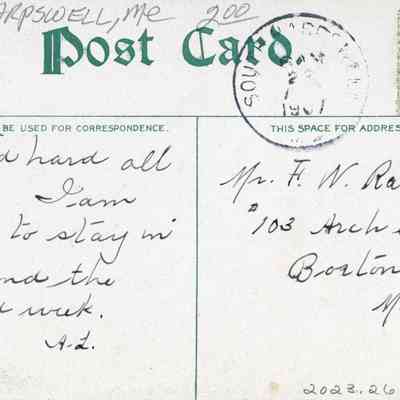 ARPSWELL, ME 200
Post Card
BE USED FOR CORRESPONDENCE.
THIS SPACE FOR ADDRES
SOU
d hard all
I am
to stay in
nd the
week.
A.L.
Mr. F. W. Ra
#103 Arch
Boston
M
2023.26